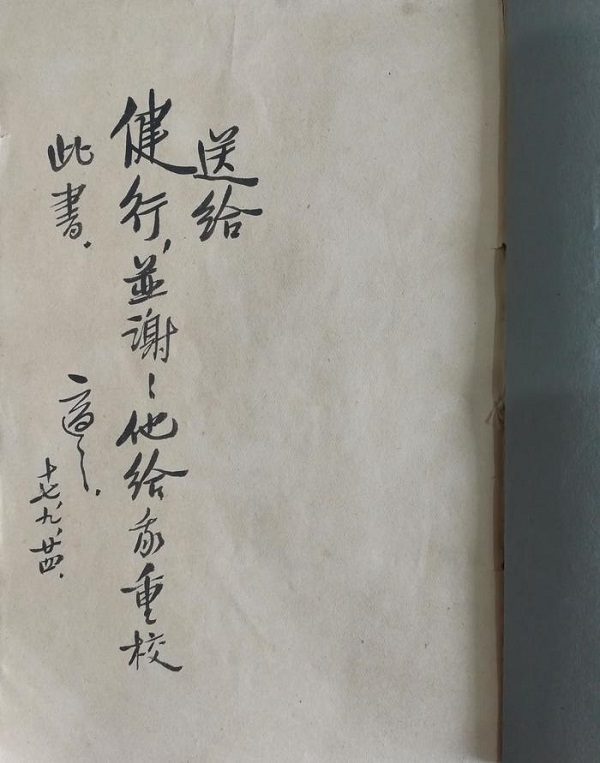 送給
健行，並謝〻他給我重校
此書．
適之．
十七、九、廿四．